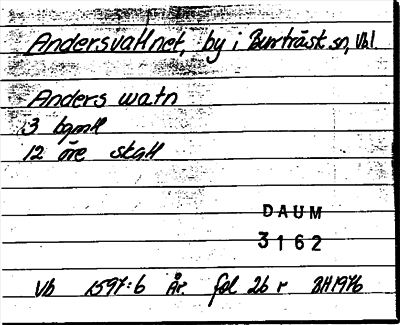 Andersvattnet, by i Burträsk sn, Vbl.
Anders watn
3 bgmtl
12 öre skatt
DAUM
3162
Vb 1597:6 År. fol 26 r BH1976